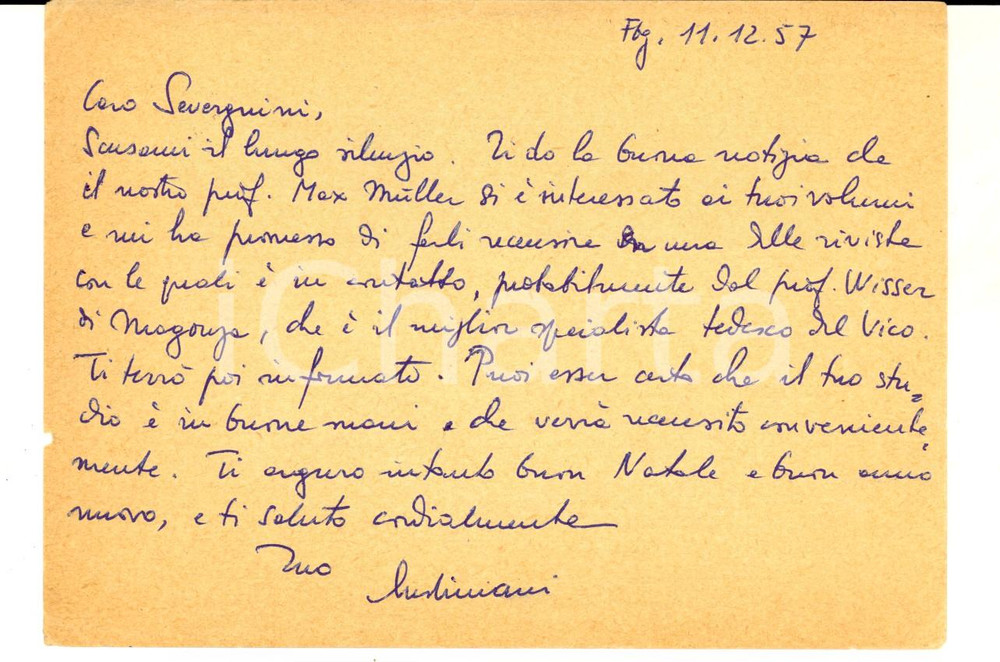 Fbg. 11.12.57
Caro Severgnini,
Scusami il lungo silenzio. Ti do la buona notizia che
il nostro prof. Max Müller si è interessato ai tuoi volumi
e mi ha promesso di farli recensire in una delle riviste
con le quali è in contatto, probabilmente dal prof. Wisser
di Magonza, che è il miglior specialista tedesco del Vico.
Ti terrò poi informato. Puoi esser certo che il tuo stu=
dio è in buone mani e che verrà recensito conveniente=
mente. Ti auguro intanto buon Natale e buon anno
nuovo, e ti saluto cordialmente
Tuo
iCharta